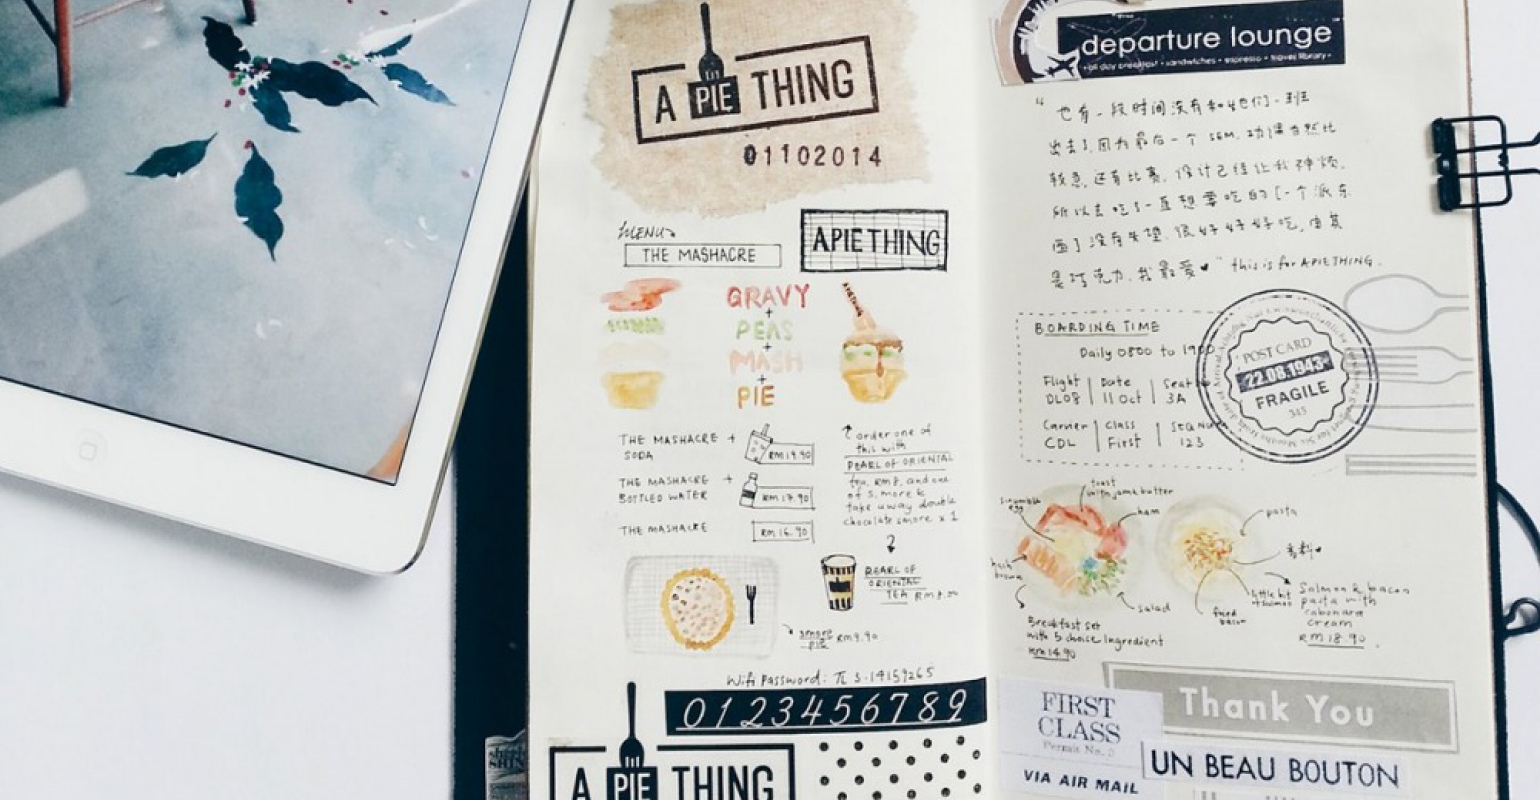 A PIE THING
01102014
MENU
THE MASHACRE
APIETHING
GRAVY
+
PEAS
+
MASH
+
PIE
THE MASHACRE +
SODA
RM19.90
THE MASHACRE +
BOTTLED WATER
RM17.90
THE MASHACRE
RM16.90
order one of
this with
PEARL OF ORIENTAL
tea, RM8, and one
of s'more &
take away double
chocolate smore x 1
PEARL OF
ORIENTAL
TEA RM8.00
smore
pie RM9.90
Wifi Password: π 3.14159265
0123456789
A PIE THING
departure lounge
all day breakfast • sandwiches • espresso • travel library
"也有一段时间没有和他们一班
出去了,因为最后一个 SEM, 功课当然比
较急,还有比赛,设计已经让我神烦,
所以去吃了一直想要吃的[一个派东
西]没有失望,很好好好好吃,尤其
是巧克力,我最爱♥" this is for APIETHING.
BOARDING TIME
Daily 0800 to 1900
Flight Date Seat
DL08 11 Oct 3A
Carrier Class Seq No
CDL First 123
POST CARD
22.08.1943
FRAGILE
345
scramble
egg
toast
with jam & butter
ham
hash
brown
salad
Breakfast set
with 5 choice Ingredient
RM14.90
pasta
香料♥
little bit
of salmon
fried
bacon
Salmon & bacon
pasta with
cabonara
cream
RM18.90.
Thank You
FIRST
CLASS
Permit No. 2
VIA AIR MAIL
UN BEAU BOUTON